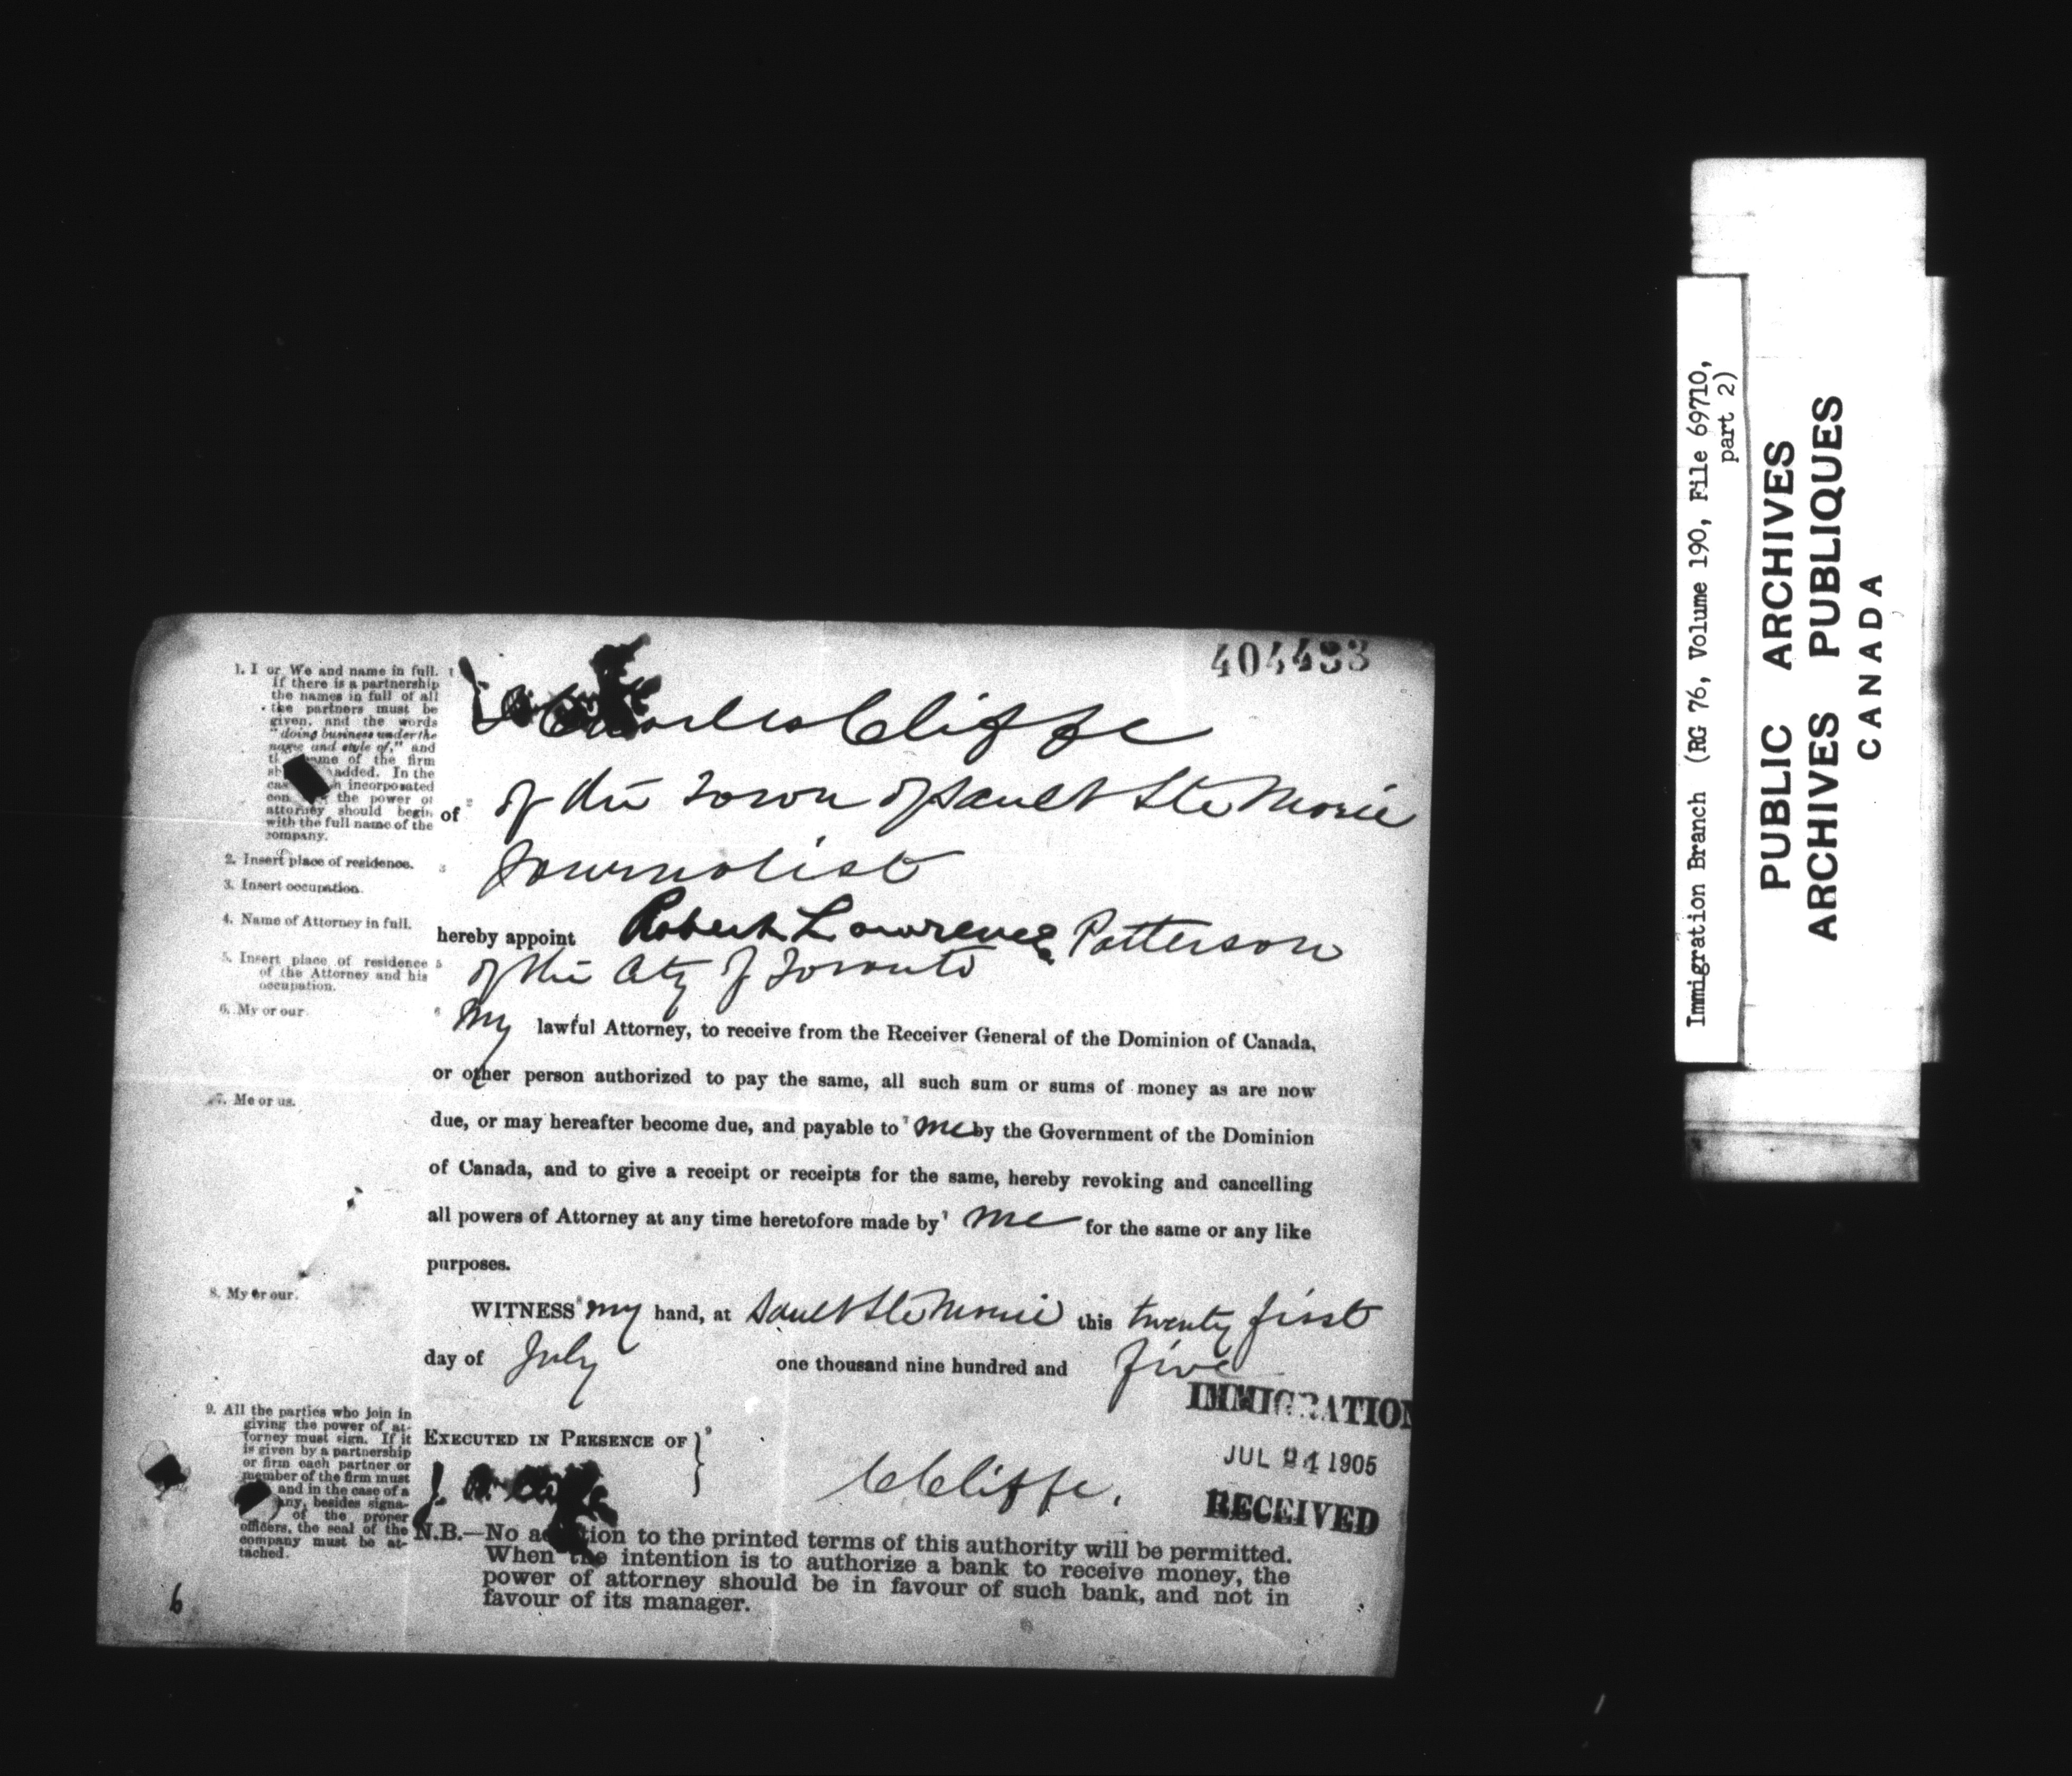 404433
1. I or We and name in full.
If there is a partnership
the names in full of all
the partners must be
given, and the words
"doing business under the
name and style of," and
name of the firm
added. In the
incorporated
the power of
attorney should begin
with the full name of the
company.
2. Insert place of residence.
3. Insert occupation.
4. Name of Attorney in full.
5. Insert place of residence
of the Attorney and his
occupation.
6. My or our
7. Me or us.
8. My or our.
9. All the parties who join in
giving the power of at-
torney must sign. If it
is given by a partnership
or firm each partner or
member of the firm must
and in the case of a
any, besides signa-
of the proper
officers, the seal of the
company must be at-
tached.
6
1 Charles Cliffe
of 2 of the Town of Sault Ste Marie
3 Journalist
hereby appoint Robert Lawrence Patterson
5 of the City of Toronto
6 My lawful Attorney, to receive from the Receiver General of the Dominion of Canada,
or other person authorized to pay the same, all such sum or sums of money as are now
due, or may hereafter become due, and payable to 7 me by the Government of the Dominion
of Canada, and to give a receipt or receipts for the same, hereby revoking and cancelling
all powers of Attorney at any time heretofore made by 7 me for the same or any like
purposes.
WITNESS 8 my hand, at Sault Ste Marie this twenty first
day of July one thousand nine hundred and five
EXECUTED IN PRESENCE OF } 9
C Cliffe.
IMMIGRATION
JUL 24 1905
RECEIVED
N.B.—No addition to the printed terms of this authority will be permitted.
When the intention is to authorize a bank to receive money, the
power of attorney should be in favour of such bank, and not in
favour of its manager.
Immigration Branch (RG 76, Volume 190, File 69710,
part 2)
PUBLIC ARCHIVES
ARCHIVES PUBLIQUES
CANADA